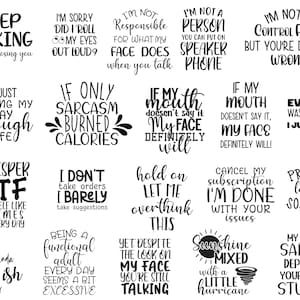 EEP
KING
osing you
I'M SORRY
DID I ROLL
MY EYES
OUT LOUD?
I'M NOT
Responsible
FOR WHAT MY
FACE DOES
when you talk
I'M NOT A
PERSON
YOU CAN PUT ON
SPEAKER
PHONE
I'M NOT
CONTROL
BUT YOU'RE
WRON
JUST
NG MY
AY
ough
IFE
IF ONLY
SARCASM
BURNED
CALORIES
IF MY
mouth
doesn't say it
My FACE
DEFINITELY
will
IF MY
MOUTH
DOESN'T SAY IT,
MY FACE
DEFINITELY WILL!
EV
WAS
I
SPER
IF
ELF LIKE
IMES
ERY DAY
I DON'T
take orders
I BARELY
take suggestions
hold on
LET ME
overthink
THIS
CANCEL MY
subscription
I'M DONE
WITH YOUR
issues
P
SO
ish
BEING A
functional
adult
EVERY DAY
SEEMS A BIT
EXCESSIVE
YET DESPITE
THE LOOK ON
MY FACE
YOU'RE STILL
TALKING
Sunshine
MIXED
with a
LITTLE
hurricane
MY
SA
DEP
YOU
STU